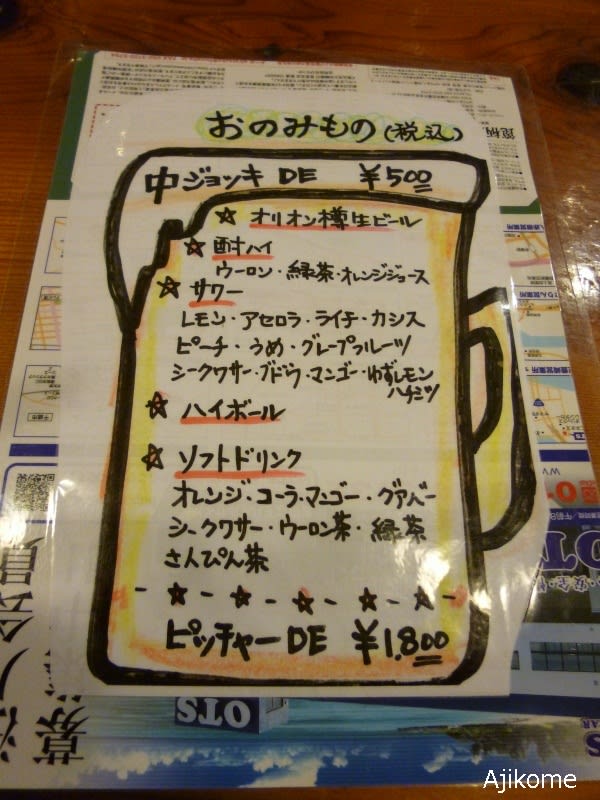 おのみもの(税込)
中ジョッキ DE ¥500
☆ オリオン樽生ビール
☆ 酎ハイ
ウーロン・緑茶・オレンジジュース
☆ サワー
レモン・アセロラ・ライチ・カシス
ピーチ・うめ・グレープフルーツ
シークワサー・ブドウ・マンゴー・ゆずレモン
ハチミツ
☆ ハイボール
☆ ソフトドリンク
オレンジ・コーラ・マンゴー・グアバー
シークワサー・ウーロン茶・緑茶
さんぴん茶
- ☆ - ☆ - ☆ - ☆ - ☆ -
ピッチャーDE ¥1,800
OTS
Ajikome